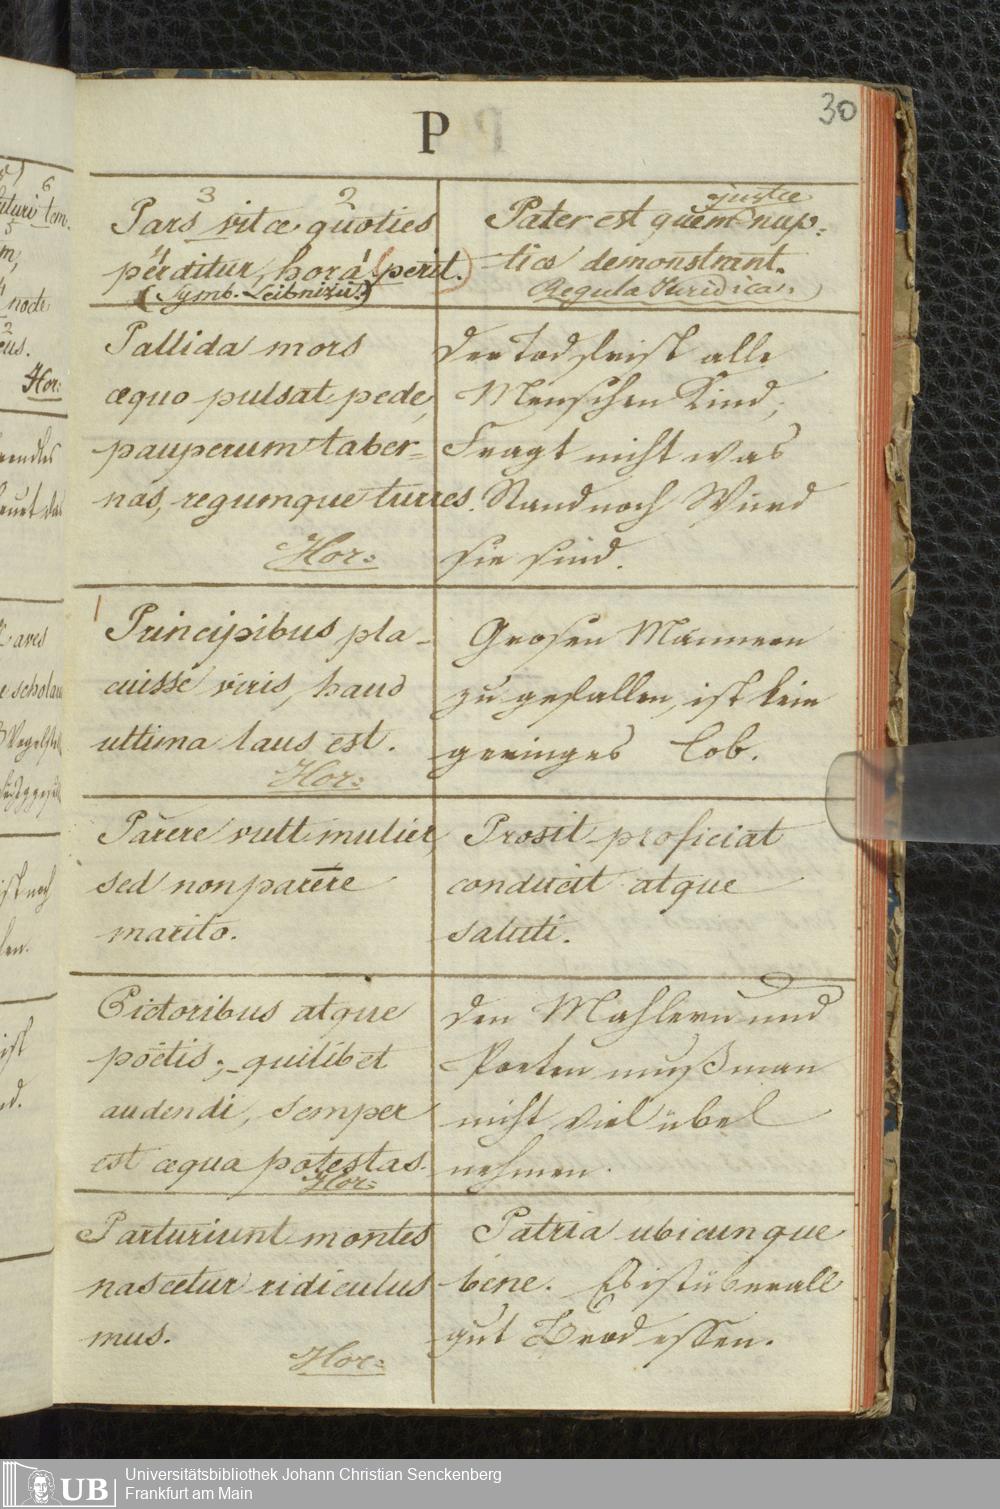 30
P
Pars vitæ quoties
perditur, hora perit.
(Symb. Leibnizii.)
Pater est quem justæ nup=
tiæ demonstrant.
(Regula Juridica.)
Pallida mors
æquo pulsat pede,
pauperum taber=
nas, regumque turres.
Hor:
Der Tod frist alle
Menschen Kind;
Fragt nicht was
Stand noch Würd
sie sind.
Principibus pla-
cuisse viris, haud
ultima laus est.
Hor:
Grosen Männern
zu gefallen, ist kein
geringes Lob.
Parere vult mulier,
sed non parere
marito.
Prosit proficiat
conducit atque
saluti.
Pictoribus atque
poëtis; quilibet
audendi, semper
est æqua potestas.
Hor:
Den Mahlern und
Poeten muß man
nicht viel übel
nehmen.
Parturiunt montes
nascetur ridiculus
mus.
Hor:
Patria ubicunque
bene. Es ist überall
gut Brod essen.
UB
Universitätsbibliothek Johann Christian Senckenberg
Frankfurt am Main